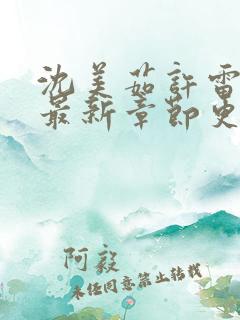 沈美茹許雷
最新章節更
阿毅
未经同意禁止转载